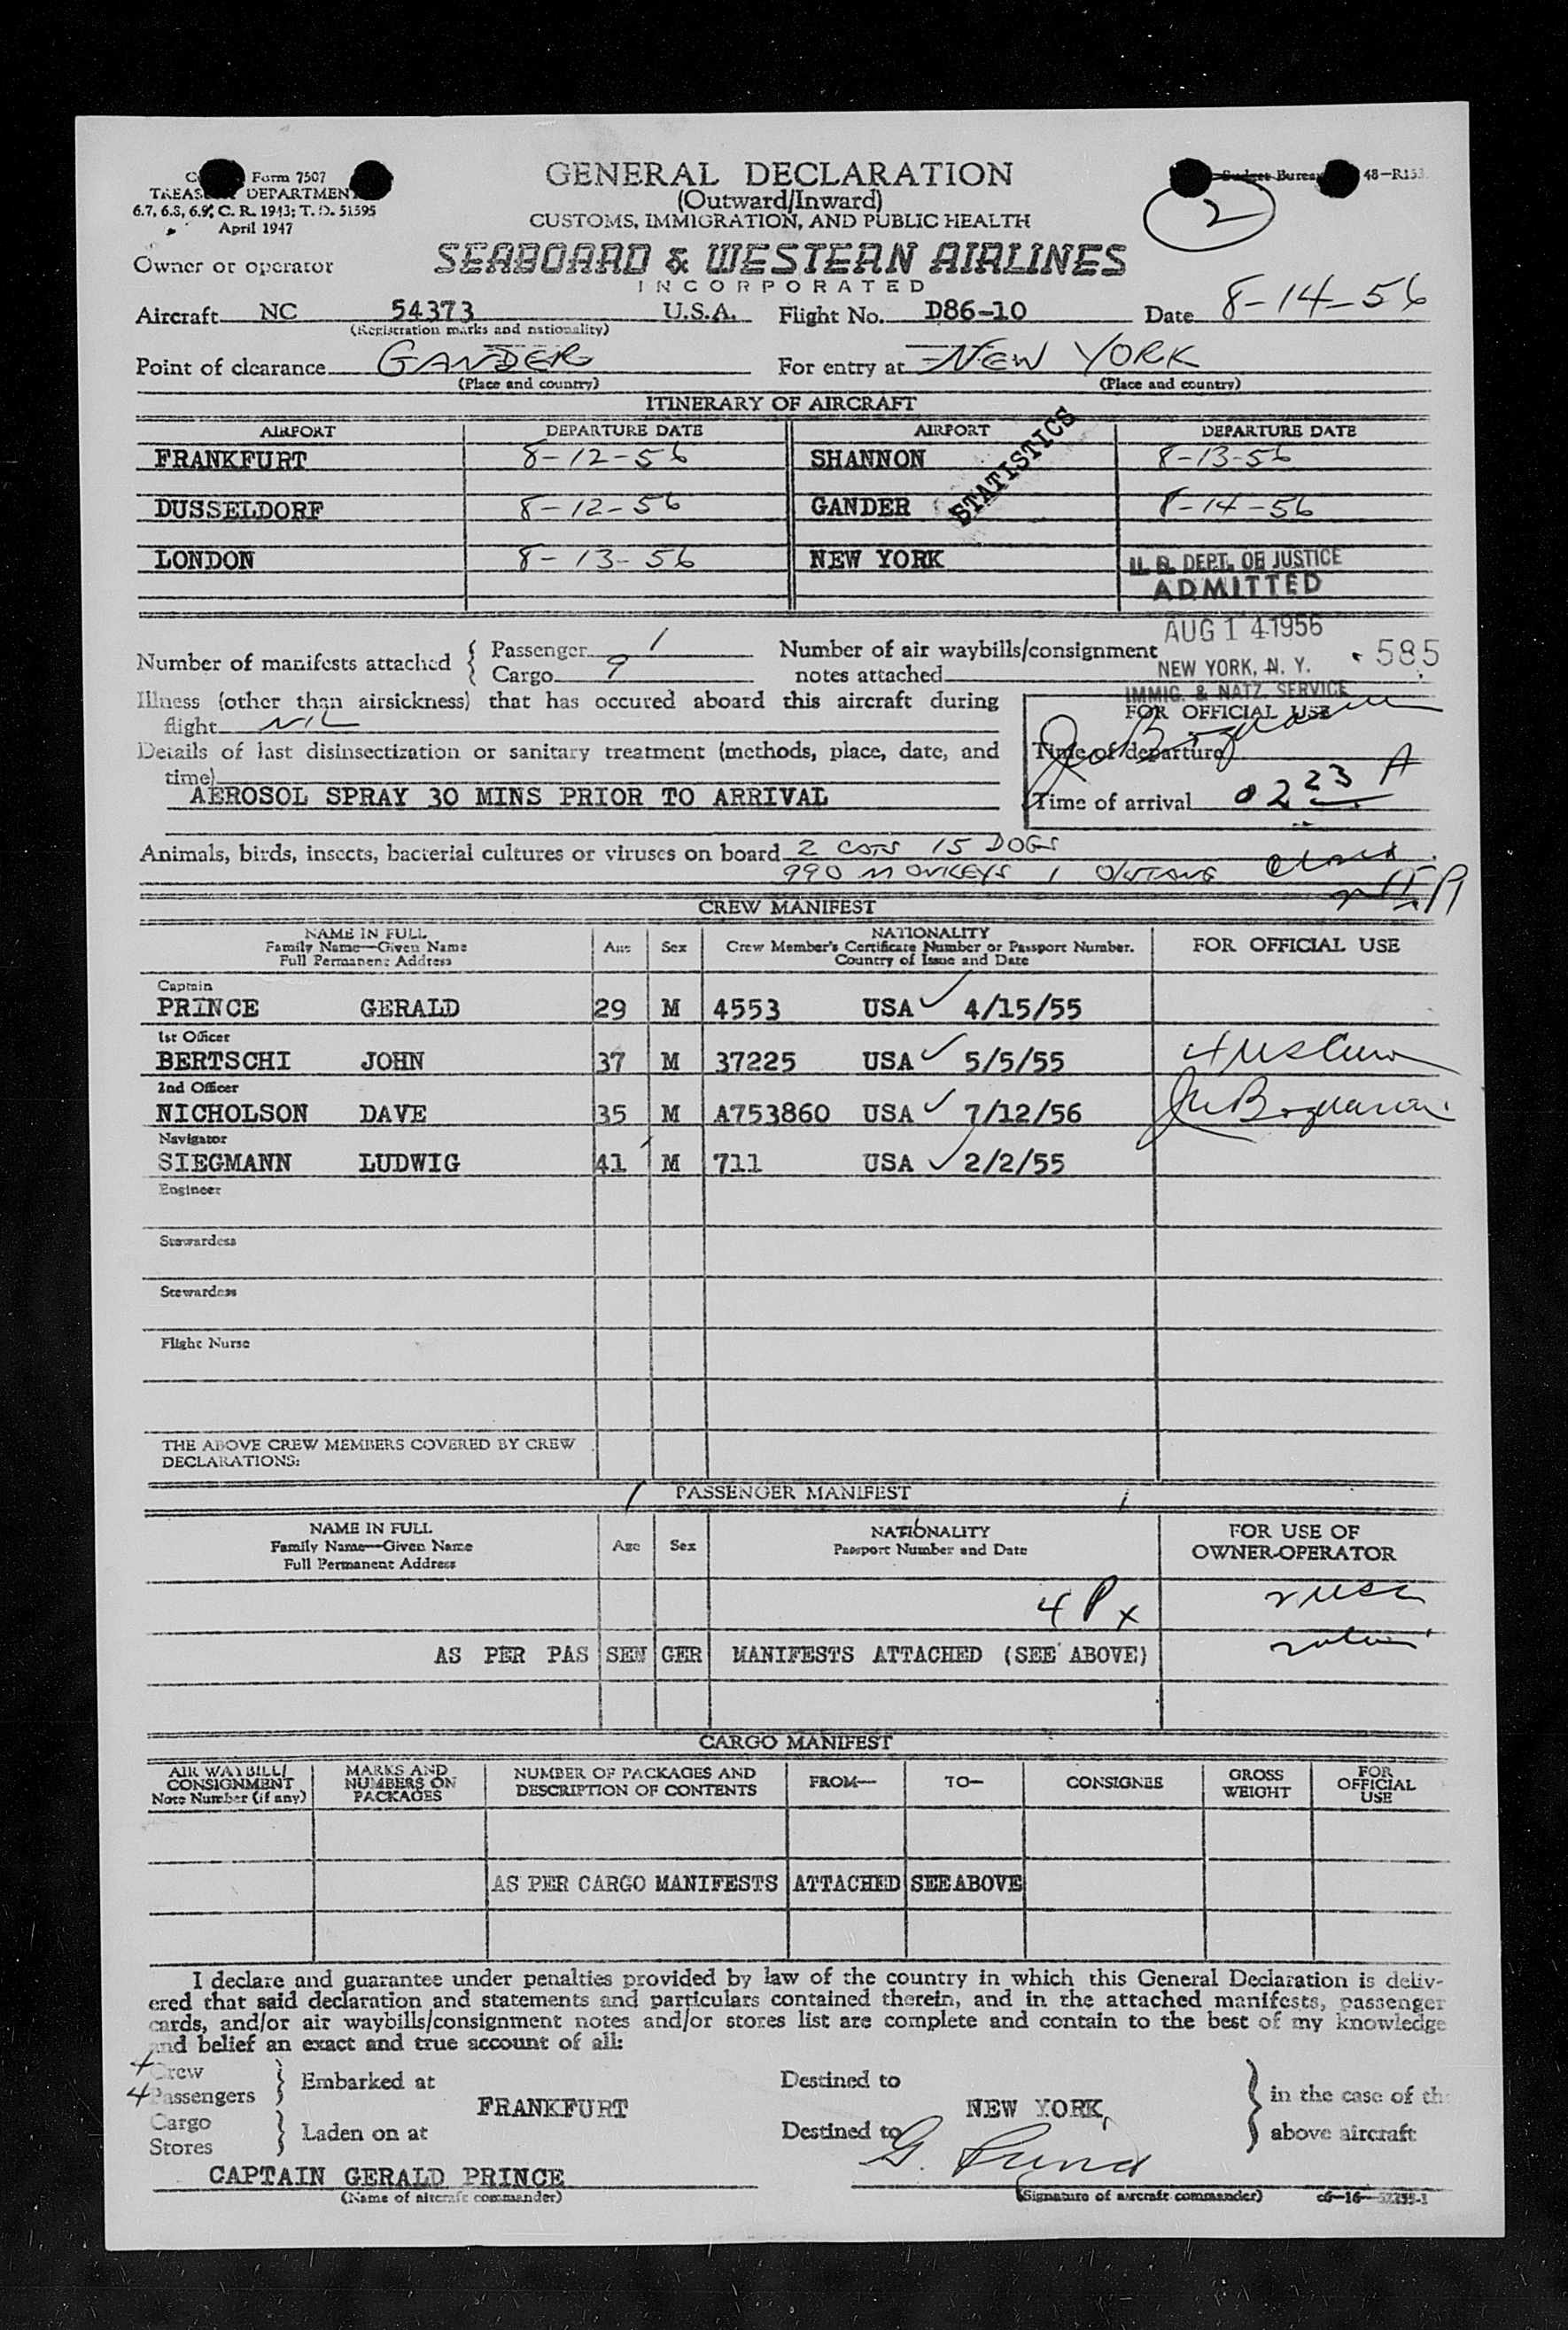 Form 7507
TREASURY DEPARTMENT
6.7, 6.8, 6.9, C. R. 1943; T. D. 51595
April 1947
GENERAL DECLARATION
(Outward/Inward)
CUSTOMS, IMMIGRATION, AND PUBLIC HEALTH
Budget Bureau 48-R153
2
Owner or operator
SEABOARD & WESTERN AIRLINES
INCORPORATED
Aircraft NC 54373 U.S.A. Flight No. D86-10 Date 8-14-56
(Registration marks and nationality)
Point of clearance GANDER For entry at NEW YORK
(Place and country) (Place and country)
ITINERARY OF AIRCRAFT
AIRPORT DEPARTURE DATE AIRPORT DEPARTURE DATE
FRANKFURT 8-12-56 SHANNON 8-13-56
DUSSELDORF 8-12-56 GANDER 8-14-56
LONDON 8-13-56 NEW YORK
STATISTICS
U. S. DEPT. OF JUSTICE
ADMITTED
AUG 14 1956
NEW YORK, N. Y.
IMMIG. & NATZ. SERVICE
585
Number of manifests attached { Passenger 1
Cargo 9
Number of air waybills/consignment
notes attached
Illness (other than airsickness) that has occured aboard this aircraft during
flight NIL
FOR OFFICIAL USE
Details of last disinsectization or sanitary treatment (methods, place, date, and
time)
AEROSOL SPRAY 30 MINS PRIOR TO ARRIVAL
Time of departure
Time of arrival 0223 A
Animals, birds, insects, bacterial cultures or viruses on board 2 CATS 15 DOGS
990 MONKEYS 1
CREW MANIFEST
NAME IN FULL
Family Name—Given Name
Full Permanent Address
Age Sex
NATIONALITY
Crew Member's Certificate Number or Passport Number.
Country of Issue and Date
FOR OFFICIAL USE
Captain
PRINCE GERALD 29 M 4553 USA ✓ 4/15/55
1st Officer
BERTSCHI JOHN 37 M 37225 USA ✓ 5/5/55
2nd Officer
NICHOLSON DAVE 35 M A753860 USA ✓ 7/12/56
Navigator
SIEGMANN LUDWIG 41 M 711 USA ✓ 2/2/55
Engineer
Stewardess
Stewardess
Flight Nurse
THE ABOVE CREW MEMBERS COVERED BY CREW
DECLARATIONS:
PASSENGER MANIFEST
NAME IN FULL
Family Name—Given Name
Full Permanent Address
Age Sex
NATIONALITY
Passport Number and Date
FOR USE OF
OWNER-OPERATOR
4 Px
AS PER PASSENGER MANIFESTS ATTACHED (SEE ABOVE)
CARGO MANIFEST
AIR WAYBILL/
CONSIGNMENT
Note Number (if any)
MARKS AND
NUMBERS ON
PACKAGES
NUMBER OF PACKAGES AND
DESCRIPTION OF CONTENTS
FROM— TO— CONSIGNEE
GROSS
WEIGHT
FOR
OFFICIAL
USE
AS PER CARGO MANIFESTS ATTACHED SEE ABOVE
I declare and guarantee under penalties provided by law of the country in which this General Declaration is deliv-
ered that said declaration and statements and particulars contained therein, and in the attached manifests, passenger
cards, and/or air waybills/consignment notes and/or stores list are complete and contain to the best of my knowledge
and belief an exact and true account of all:
4 Crew
4 Passengers } Embarked at Destined to
FRANKFURT NEW YORK
Cargo
Stores } Laden on at Destined to
} in the case of the
above aircraft
CAPTAIN GERALD PRINCE G. Prince
(Name of aircraft commander) (Signature of aircraft commander)